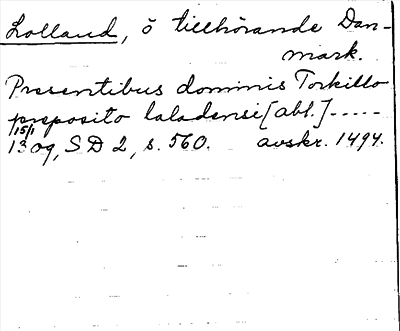 Lolland, ö tillhörande Dan-
mark.
Presentibus dominis Torkillo
preposito laladensi [abl.] -----
15/1
1309, SD 2, s. 560. avskr. 1494.